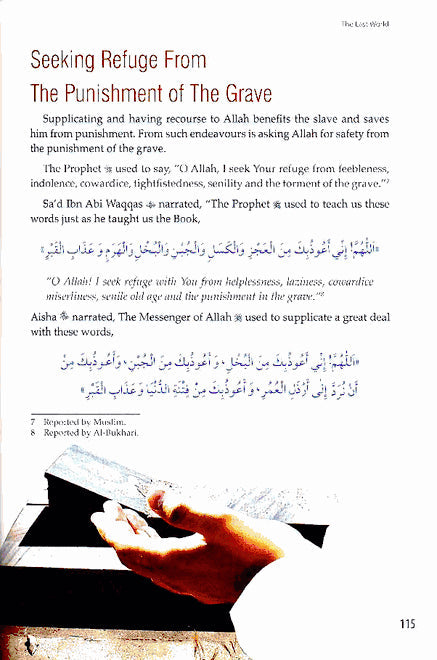 The Last World
Seeking Refuge From
The Punishment of The Grave
Supplicating and having recourse to Allah benefits the slave and saves
him from punishment. From such endeavours is asking Allah for safety from
the punishment of the grave.
The Prophet ﷺ used to say, "O Allah, I seek Your refuge from feebleness,
indolence, cowardice, tightfistedness, senility and the torment of the grave."7
Sa'd Ibn Abi Waqqas narrated, "The Prophet ﷺ used to teach us these
words just as he taught us the Book,
«اَللَّهُمَّ! إِنِّي أَعُوذُبِكَ مِنَ الْعَجْزِ وَالْكَسَلِ وَالْجُبْنِ وَالْبُخْلِ وَالْهَرَمِ وَ عَذَابِ الْقَبْرِ»
"O Allah! I seek refuge with You from helplessness, laziness, cowardice
miserliness, senile old age and the punishment in the grave."8
Aisha narrated, The Messenger of Allah ﷺ used to supplicate a great deal
with these words,
«اَللَّهُمَّ! إِنِّي أَعُوذُبِكَ مِنَ الْبُخْلِ، وَ أَعُوذُبِكَ مِنَ الْجُبْنِ، وَأَعُوذُبِكَ مِنْ
أَنْ نُرَدَّ إِلَى أَرْذَلِ الْعُمُرِ، وَ أَعُوذُبِكَ مِنْ فِتْنَةِ الدُّنْيَا وَ عَذَابِ الْقَبْرِ»
7 Reported by Muslim.
8 Reported by Al-Bukhari.
115